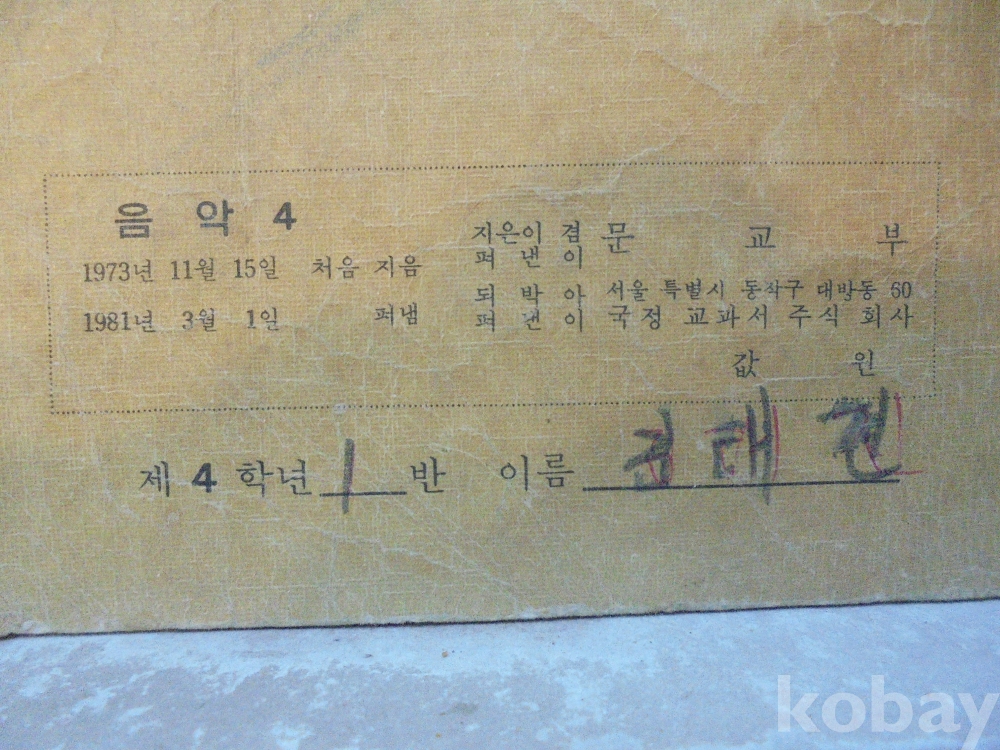 음 악 4
1973년 11월 15일 처음 지음
1981년 3월 1일 펴냄
지은이 겸 펴 낸 이 문 교 부
되 박 아 펴 낸 이 서울 특별시 동작구 대방동 60
국정 교과서 주식 회사
값 원
제 4 학년 1 반 이름 권 태
kobay